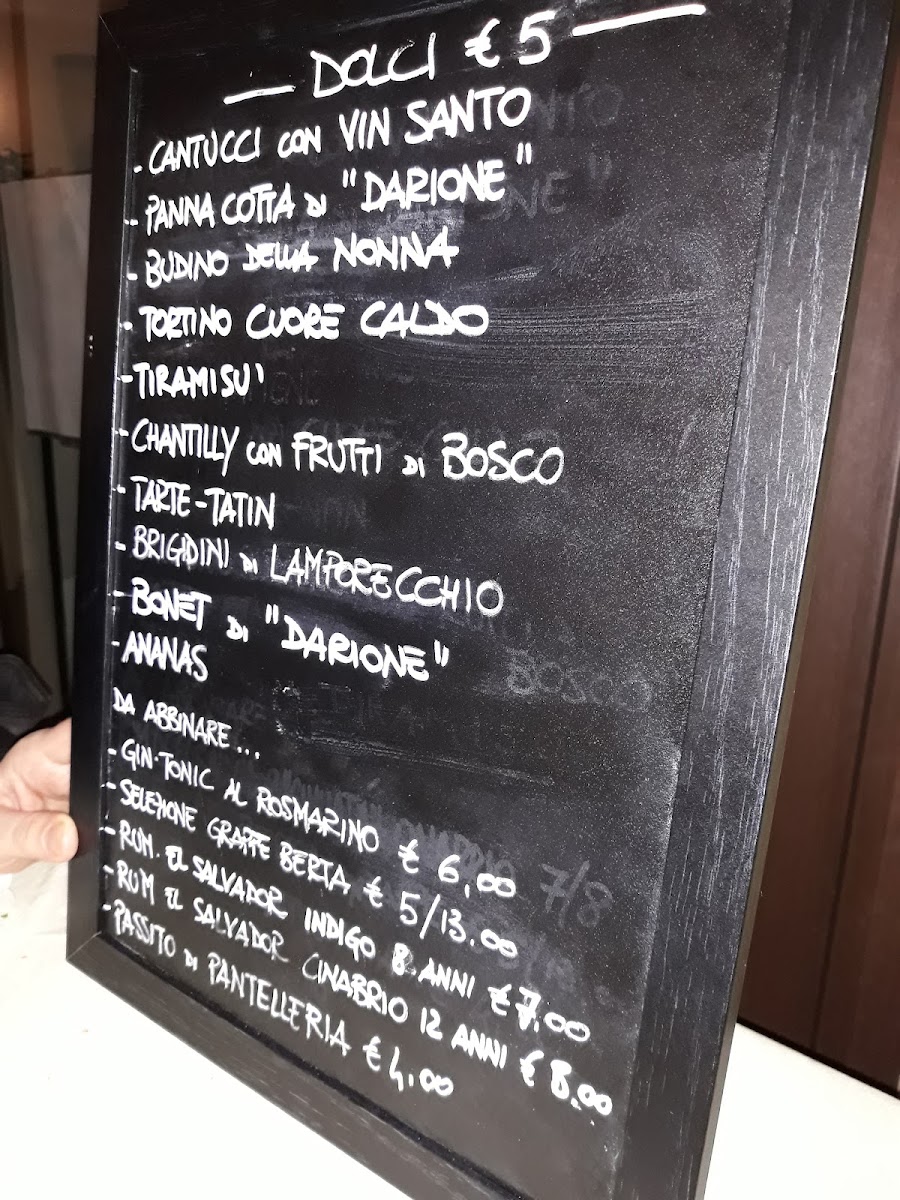 DOLCI € 5
- CANTUCCI CON VIN SANTO
- PANNA COTTA DI "DARIONE"
- BUDINO DELLA NONNA
- TORTINO CUORE CALDO
- TIRAMISU'
- CHANTILLY CON FRUTTI DI BOSCO
- TARTE-TATIN
- BRIGIDINI DI LAMPORECCHIO
- BONET DI "DARIONE"
- ANANAS
DA ABBINARE...
- GIN-TONIC AL ROSMARINO € 6,00
- SELEZIONE GRAPPE BERTA € 5/13.00
- RUM. EL SALVADOR INDIGO 8 ANNI € 7.00
- RUM EL SALVADOR CINABRIO 12 ANNI € 8.00
- PASSITO DI PANTELLERIA € 4,00